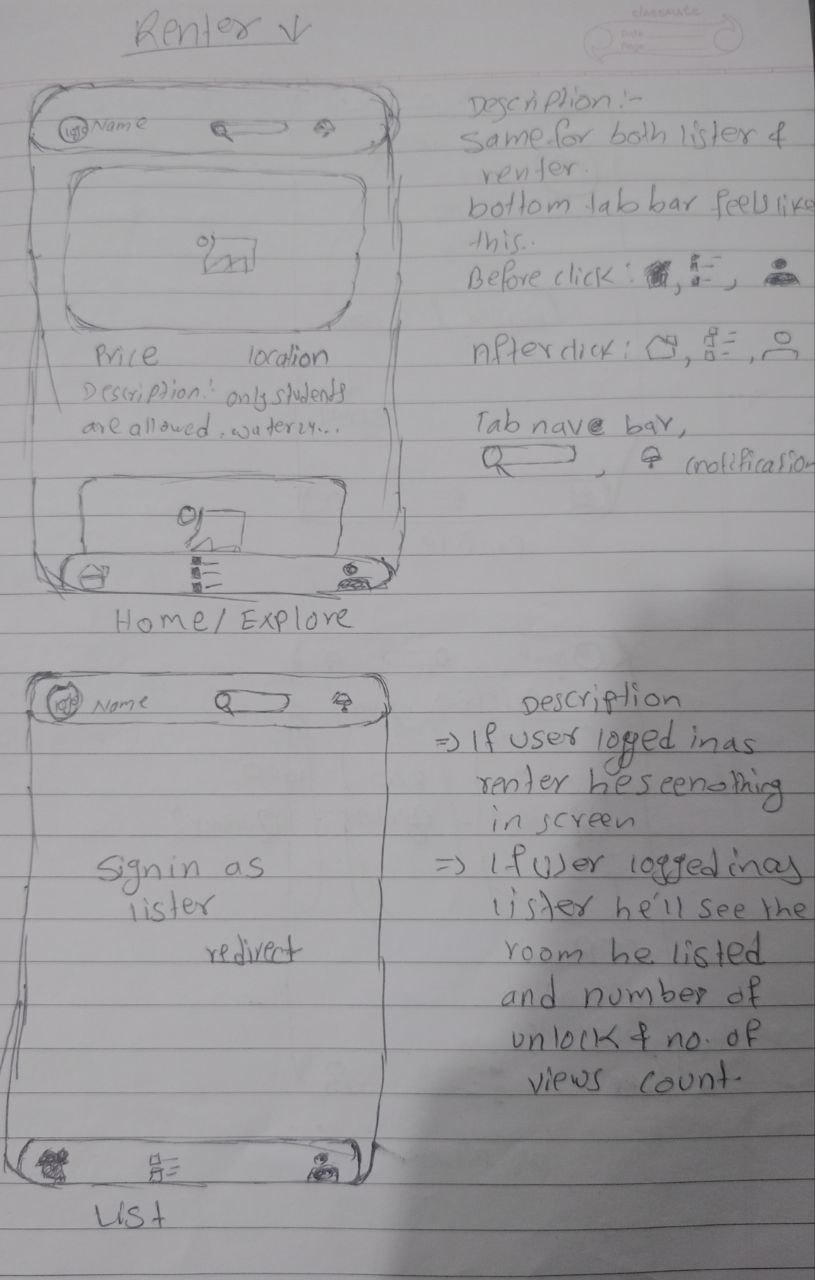 Renter ↓
classmate
Date
Page
logo Name
Price location
Description:- only students
are allowed, water
Home/ Explore
Description:-
Same for both lister &
renter.
bottom tab bar feels like
this..
Before click :
After click :
Tab nave bar,
(notification
logo Name
Signin as
lister
redirect
List
Description
=> If user logged in as
renter he see nothing
in screen
=> If user logged in as
lister he'll see the
room he listed
and number of
unlock & no. of
views count.